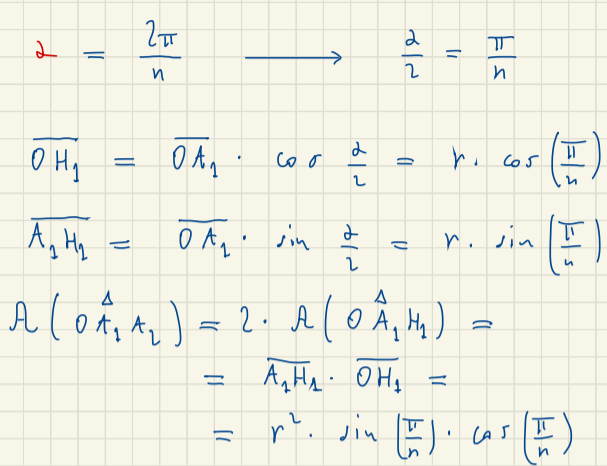 α = 2π/n ⟶ α/2 = π/n
OH₁ = OA₁ · cos α/2 = r · cos(π/n)
A₁H₁ = OA₁ · sin α/2 = r · sin(π/n)
A(OA₁A₂) = 2 · A(OA₁H₁) =
= A₁H₁ · OH₁ =
= r² · sin(π/n) · cos(π/n)